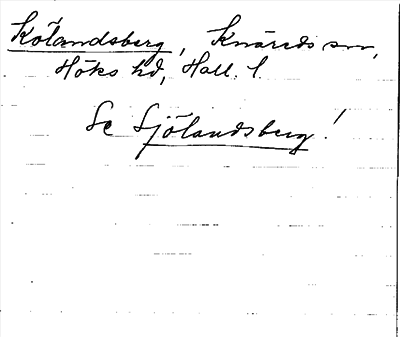 Kölandsberg, Knäreds sn,
Höks hd, Hall. l.
Se Sjölandsberg!